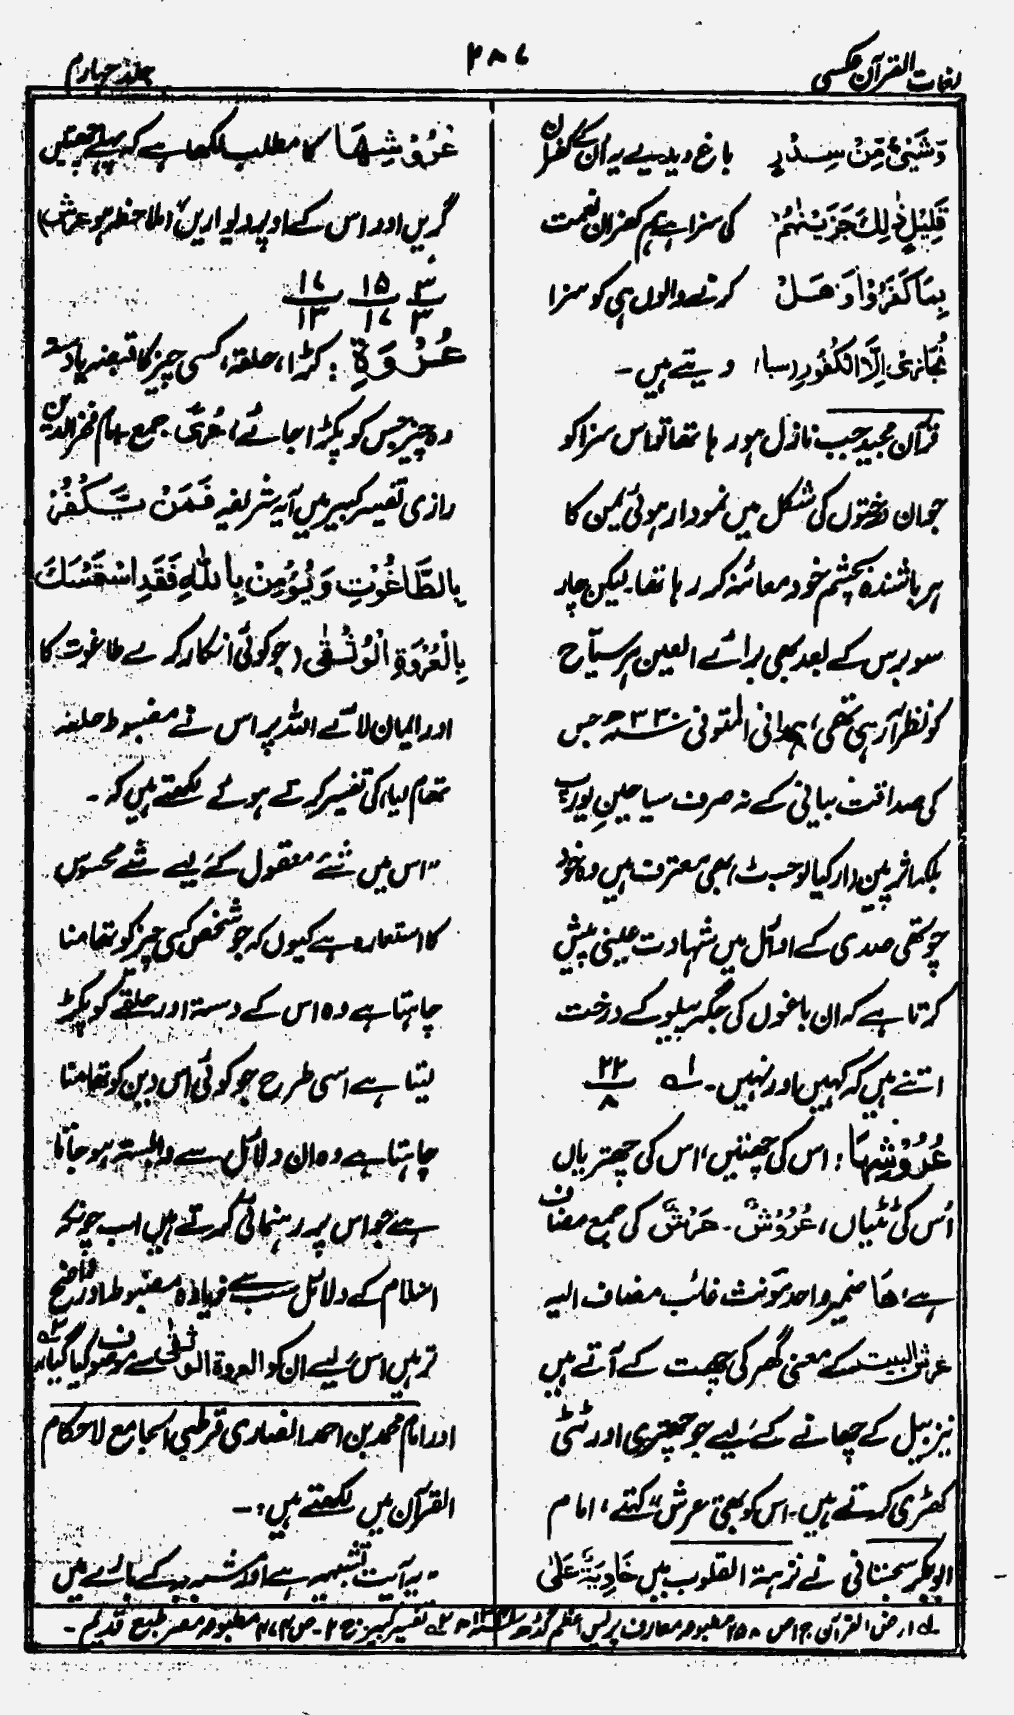 لغات القرآن عکسی
۲۸۷
جلد چہارم
وَشَیْءٍ مِّنْ سِدْرٍ باغ دیدیے یہ اُن کے کفران
قَلِیْلٍ ذٰلِكَ جَزَیْنٰهُمْ کی سزا ہے ہم کفران نعمت
بِمَا كَفَرُوْا وَهَلْ کرنے والوں ہی کو سزا
نُجَازِیْ اِلَّا الْكَفُوْرَ (سبا) دیتے ہیں۔
قرآن مجید جب نازل ہو رہا تھا تو اس سزا کو
جہان درختوں کی شکل میں نمودار ہوئی یمن کا
ہر باشندہ بچشم خود معائنہ کر رہا تھا۔ لیکن چار
سو برس کے بعد بھی برائے العین ہر سیّاح
کو نظر آ رہی تھی، ہمدانی المتوفی ۳۳۰ھ جس
کی صداقت بیانی کے نہ صرف سیاحینِ یورپ
بلکہ اثریین دار کیالوجسٹ، بھی معترف ہیں وہ خود
چوتھی صدی کے اوائل میں شہادت عینی پیش
کرتا ہے کہ ان باغوں کی جگہ پیلو کے درخت
اتنے ہیں کہ کہیں اور نہیں۔ لہ ۱ ۲۲ / ۸
عُرُوْشِهَا: اس کی چھتیں، اس کی چھتریاں
اُس کی ٹٹیاں، عُرُوْشٌ۔ عَرْشٌ کی جمع مضاف
ہے، ھَا ضمیر واحد مؤنث غائب مضاف الیہ
عرش البیت کے معنی گھر کی چھت کے آتے ہیں
نیز بیل کے چھانے کے لیے جو چھتری اور ٹٹی
کھڑی کرتے ہیں۔ اس کو بھی عرش کہتے، امام
ابوبکر سجستانی نے نزہۃ القلوب میں خَاوِیَةٌ عَلٰی
عُرُوْشِهَا کا مطلب لکھا ہے کہ پہلے چھتیں
گریں اور اس کے اوپر دیواریں، (ملاحظہ ہو عرش)
۳ / ۳ ۱۵ / ۱۷ ۱۷ / ۱۳
عُرْوَةِ: کڑا، حلقہ، کسی چیز کا قبضہ یا دستہ
وہ چیز جس کو پکڑا جائے، عُرًی۔ جمع امام فخر الدین
رازی تفسیر کبیر میں آیہ شریفہ فَمَنْ یَّكْفُرْ
بِالطَّاغُوْتِ وَیُؤْمِنْ بِاللّٰهِ فَقَدِ اسْتَمْسَكَ
بِالْعُرْوَةِ الْوُثْقٰی (جو کوئی انکار کر لے طاغوت کا
اور ایمان لائے اللہ پر اس نے مضبوط حلقہ
تھام لیا، کی تفسیر کرتے ہوئے لکھتے ہیں کہ۔
"اس میں شے معقول کے لیے شے محسوس
کا استعارہ ہے کیوں کہ جو شخص کسی چیز کو تھامنا
چاہتا ہے وہ اس کے دستہ اور حلقے کو پکڑ
لیتا ہے اسی طرح جو کوئی اس دین کو تھامنا
چاہتا ہے وہ ان دلائل سے وابستہ ہو جاتا
ہے جو اس پر رہنمائی کرتے ہیں اب چونکہ
اسلام کے دلائل سب سے زیادہ مضبوط اور واضح
تر ہیں اس لیے ان کو العروۃ الوثقیٰ سے موصوف کیا گیا ہے
اور امام محمد بن احمد انصاری قرطبی الجامع لاحکام
القرآن میں لکھتے ہیں:۔
"یہ آیت تشبیہہ ہے اور مشبہ بہ کے بارے میں
لہ ارض القرآن ج ۱ ص ۲۵۸ مطبوعہ معارف پریس اعظم گڈھ تفسیر کبیر ج ۲۔ ص ۴۷۴ مطبوعہ مصر طبع قدیم۔